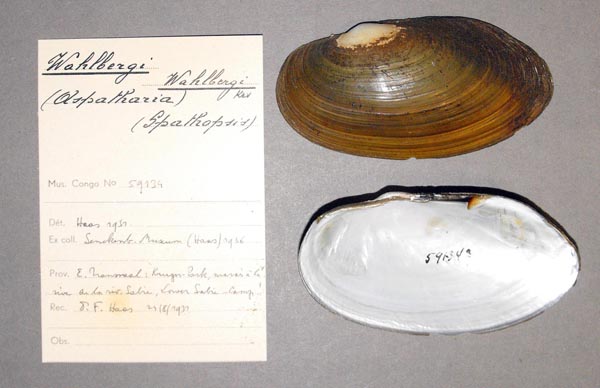 Wahlbergi
Wahlbergi
(Aspatharia) Krs
(Spathopsis)
Mus. Congo No 59134
Dét. Haas 1951
Ex coll. Senckenb. Museum (Haas) 1956
Prov. E. Transvaal: Kruger-Park, marais à la
rive de la riv. Sabie, Lower Sabie Camp
Rec. Dr. F. Haas 1931
Obs.